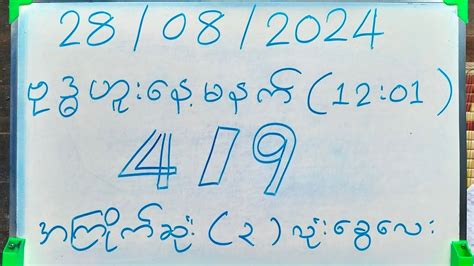 28/08/2024
ဗုဒ္ဓဟူးနေ့မနက် (12:01)
4/9
အကြိုက်ဆုံး (၃) လုံးခွေလေး